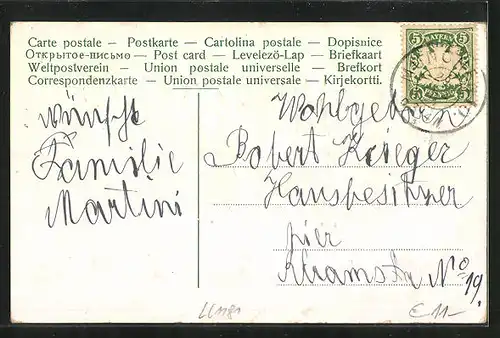 Carte postale – Postkarte – Cartolina postale – Dopisnice
Открытое-письмо – Post card – Levelező-Lap – Briefkaart
Weltpostverein – Union postale universelle – Brefkort
Correspondenzkarte – Union postale universale – Kirjekortti.
5 BAYERN 5
wünscht
Familie
Martini
Wohlgeboren
Robert Krieger
Hausbesitzer
hier
No 19.